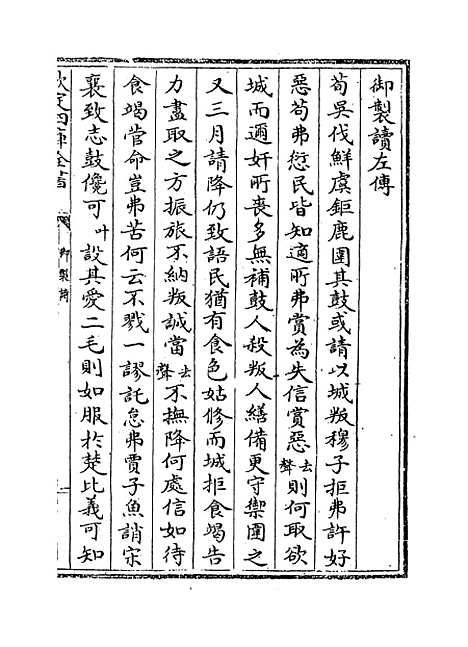 御製讀左傳
荀吳伐鮮虞鉅鹿圍其鼓或請以城叛穆子拒弗許好
惡苟弗愆民皆知適所弗賞為失信賞惡去聲則何取欲
城而邇奸所喪多無補鼓人殺叛人繕備更守禦圍之
又三月請降仍致語民猶有食色姑修而城拒食竭告
力盡取之方振旅不納叛誠當去聲不撫降何處信如待
食竭嘗命豈弗苦何云不戮一謬託怠弗賈子魚誚宋
襄致志鼓儳可叶設其愛二毛則如服於楚比義可知
欽定四庫全書
御製詩